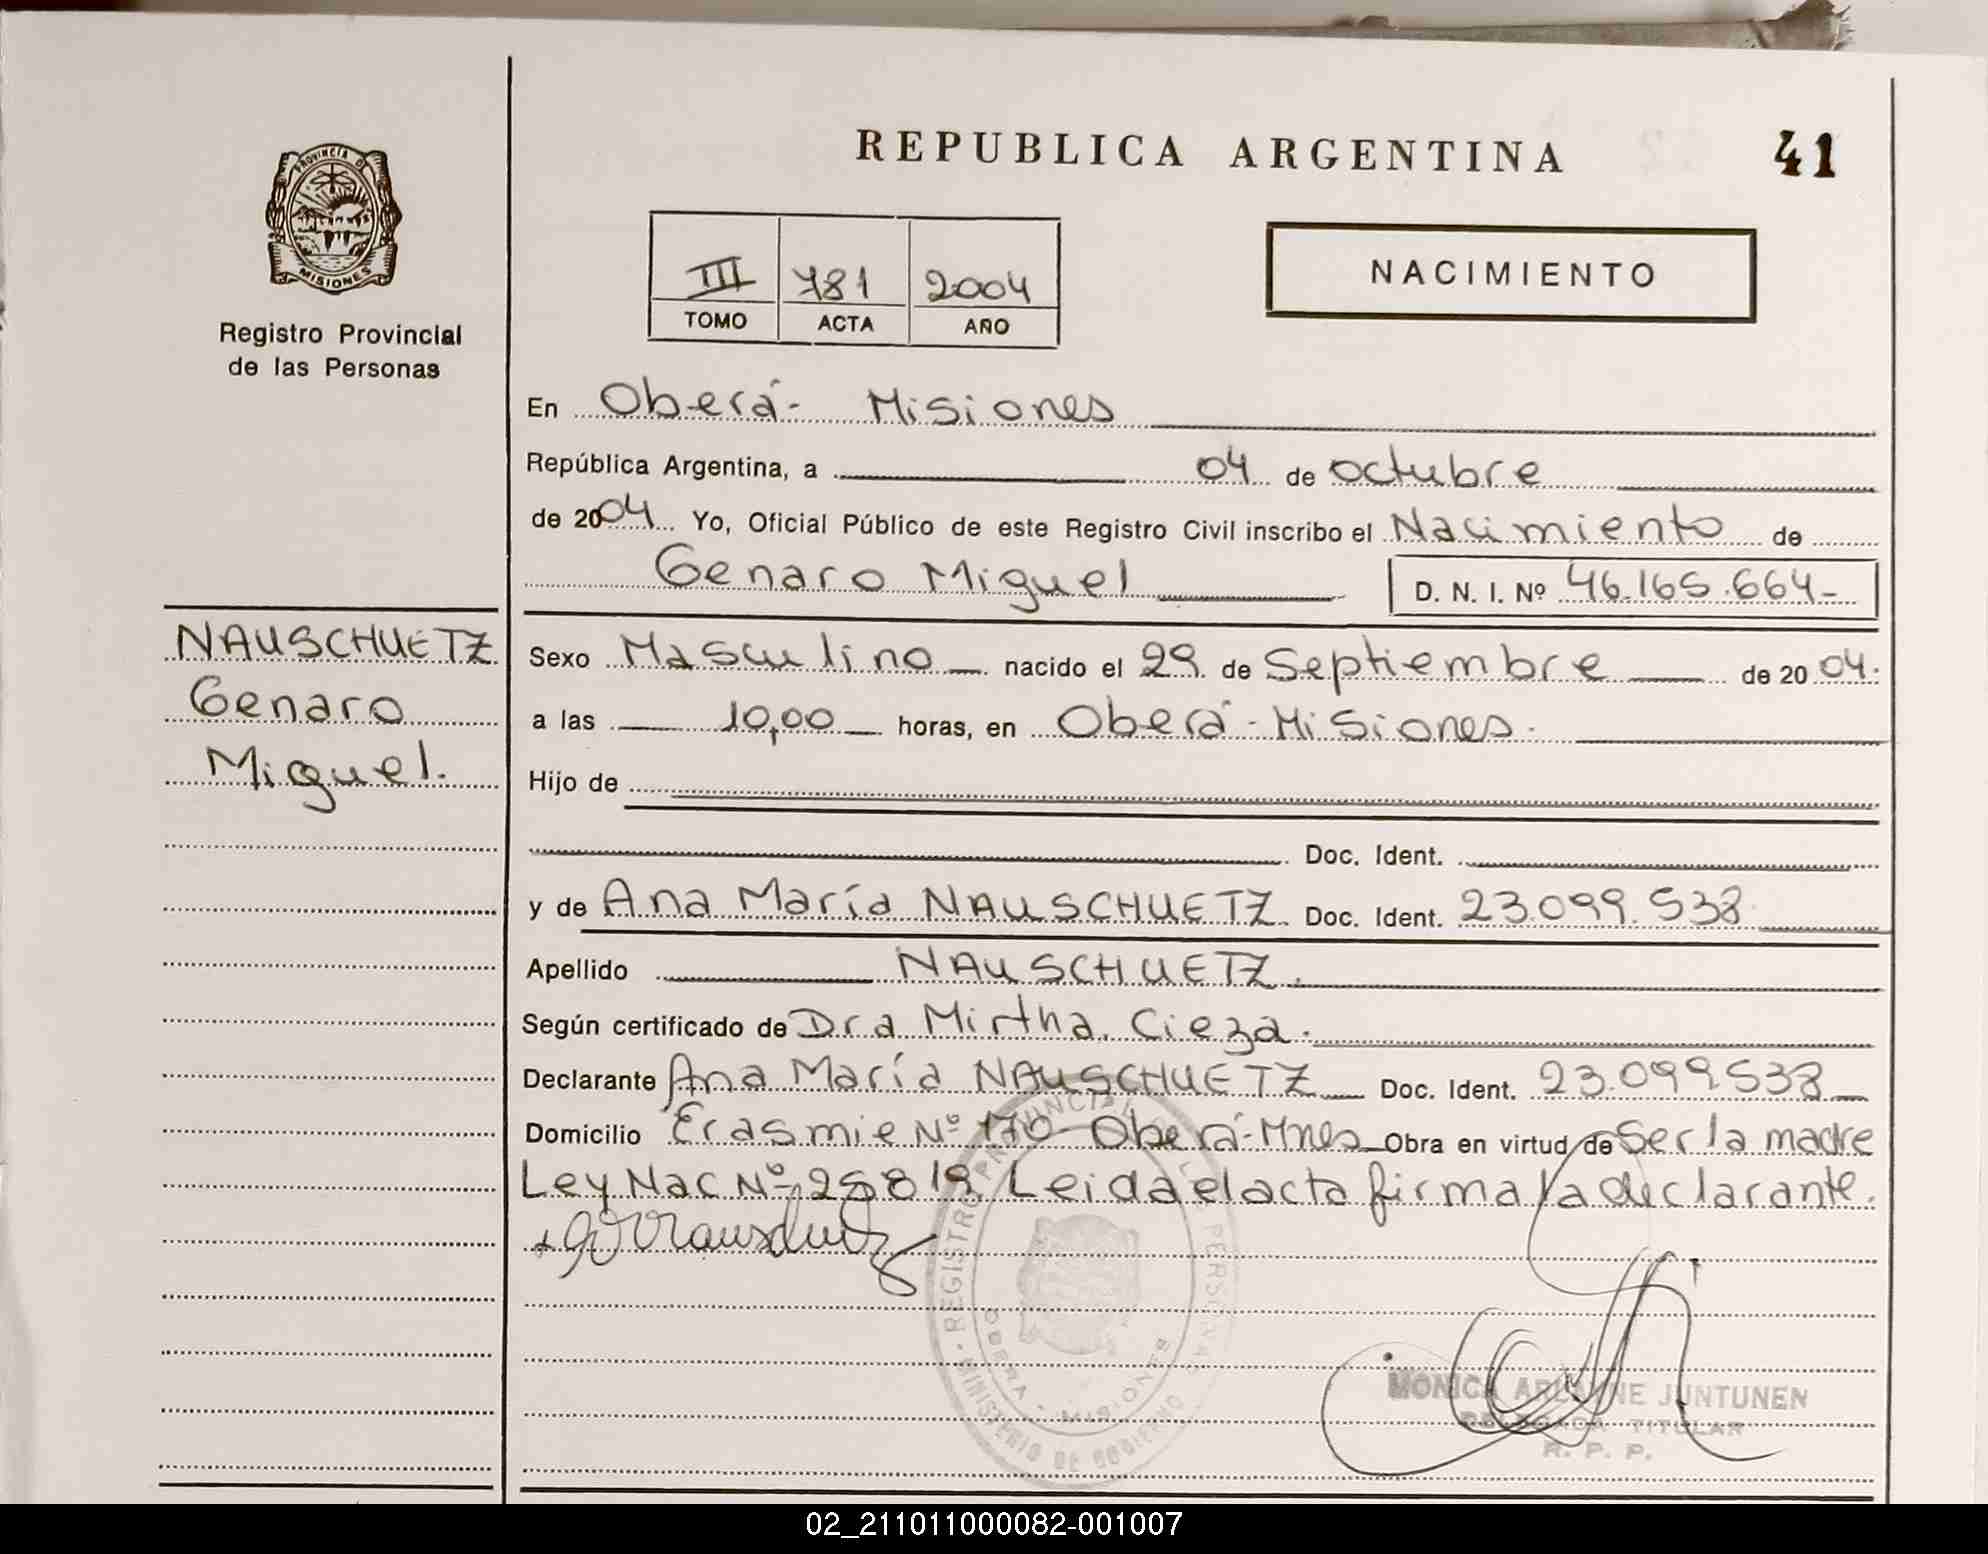 REPUBLICA ARGENTINA
41
PROVINCIA D
MISIONES
Registro Provincial
de las Personas
III 781 2004
TOMO ACTA AÑO
NACIMIENTO
En Oberá - Misiones
República Argentina, a 04 de octubre
de 2004 Yo, Oficial Público de este Registro Civil inscribo el Nacimiento de
Genaro Miguel D. N. I. Nº 46.165.664-
NAUSCHUETZ
Genaro
Miguel.
Sexo Masculino nacido el 29 de Septiembre de 2004.
a las 10,00 horas, en Oberá - Misiones.
Hijo de
Doc. Ident.
y de Ana María NAUSCHUETZ Doc. Ident. 23.099.538
Apellido NAUSCHUETZ.
Según certificado de Dra Mirtha Cieza.
Declarante Ana María NAUSCHUETZ Doc. Ident. 23.099.538
Domicilio Erasmie Nº 170 - Oberá - Mnes Obra en virtud de Ser la madre
Ley Nac Nº 25819 Leida el acta firma la declarante.
REGISTRO PROVINCIAL DE LAS PERSONAS
OBERA - MISIONES
MINISTERIO DE GOBIERNO
MONICA ARIANNE JUNTUNEN
DELEGADA TITULAR
R. P. P.
02_211011000082-001007